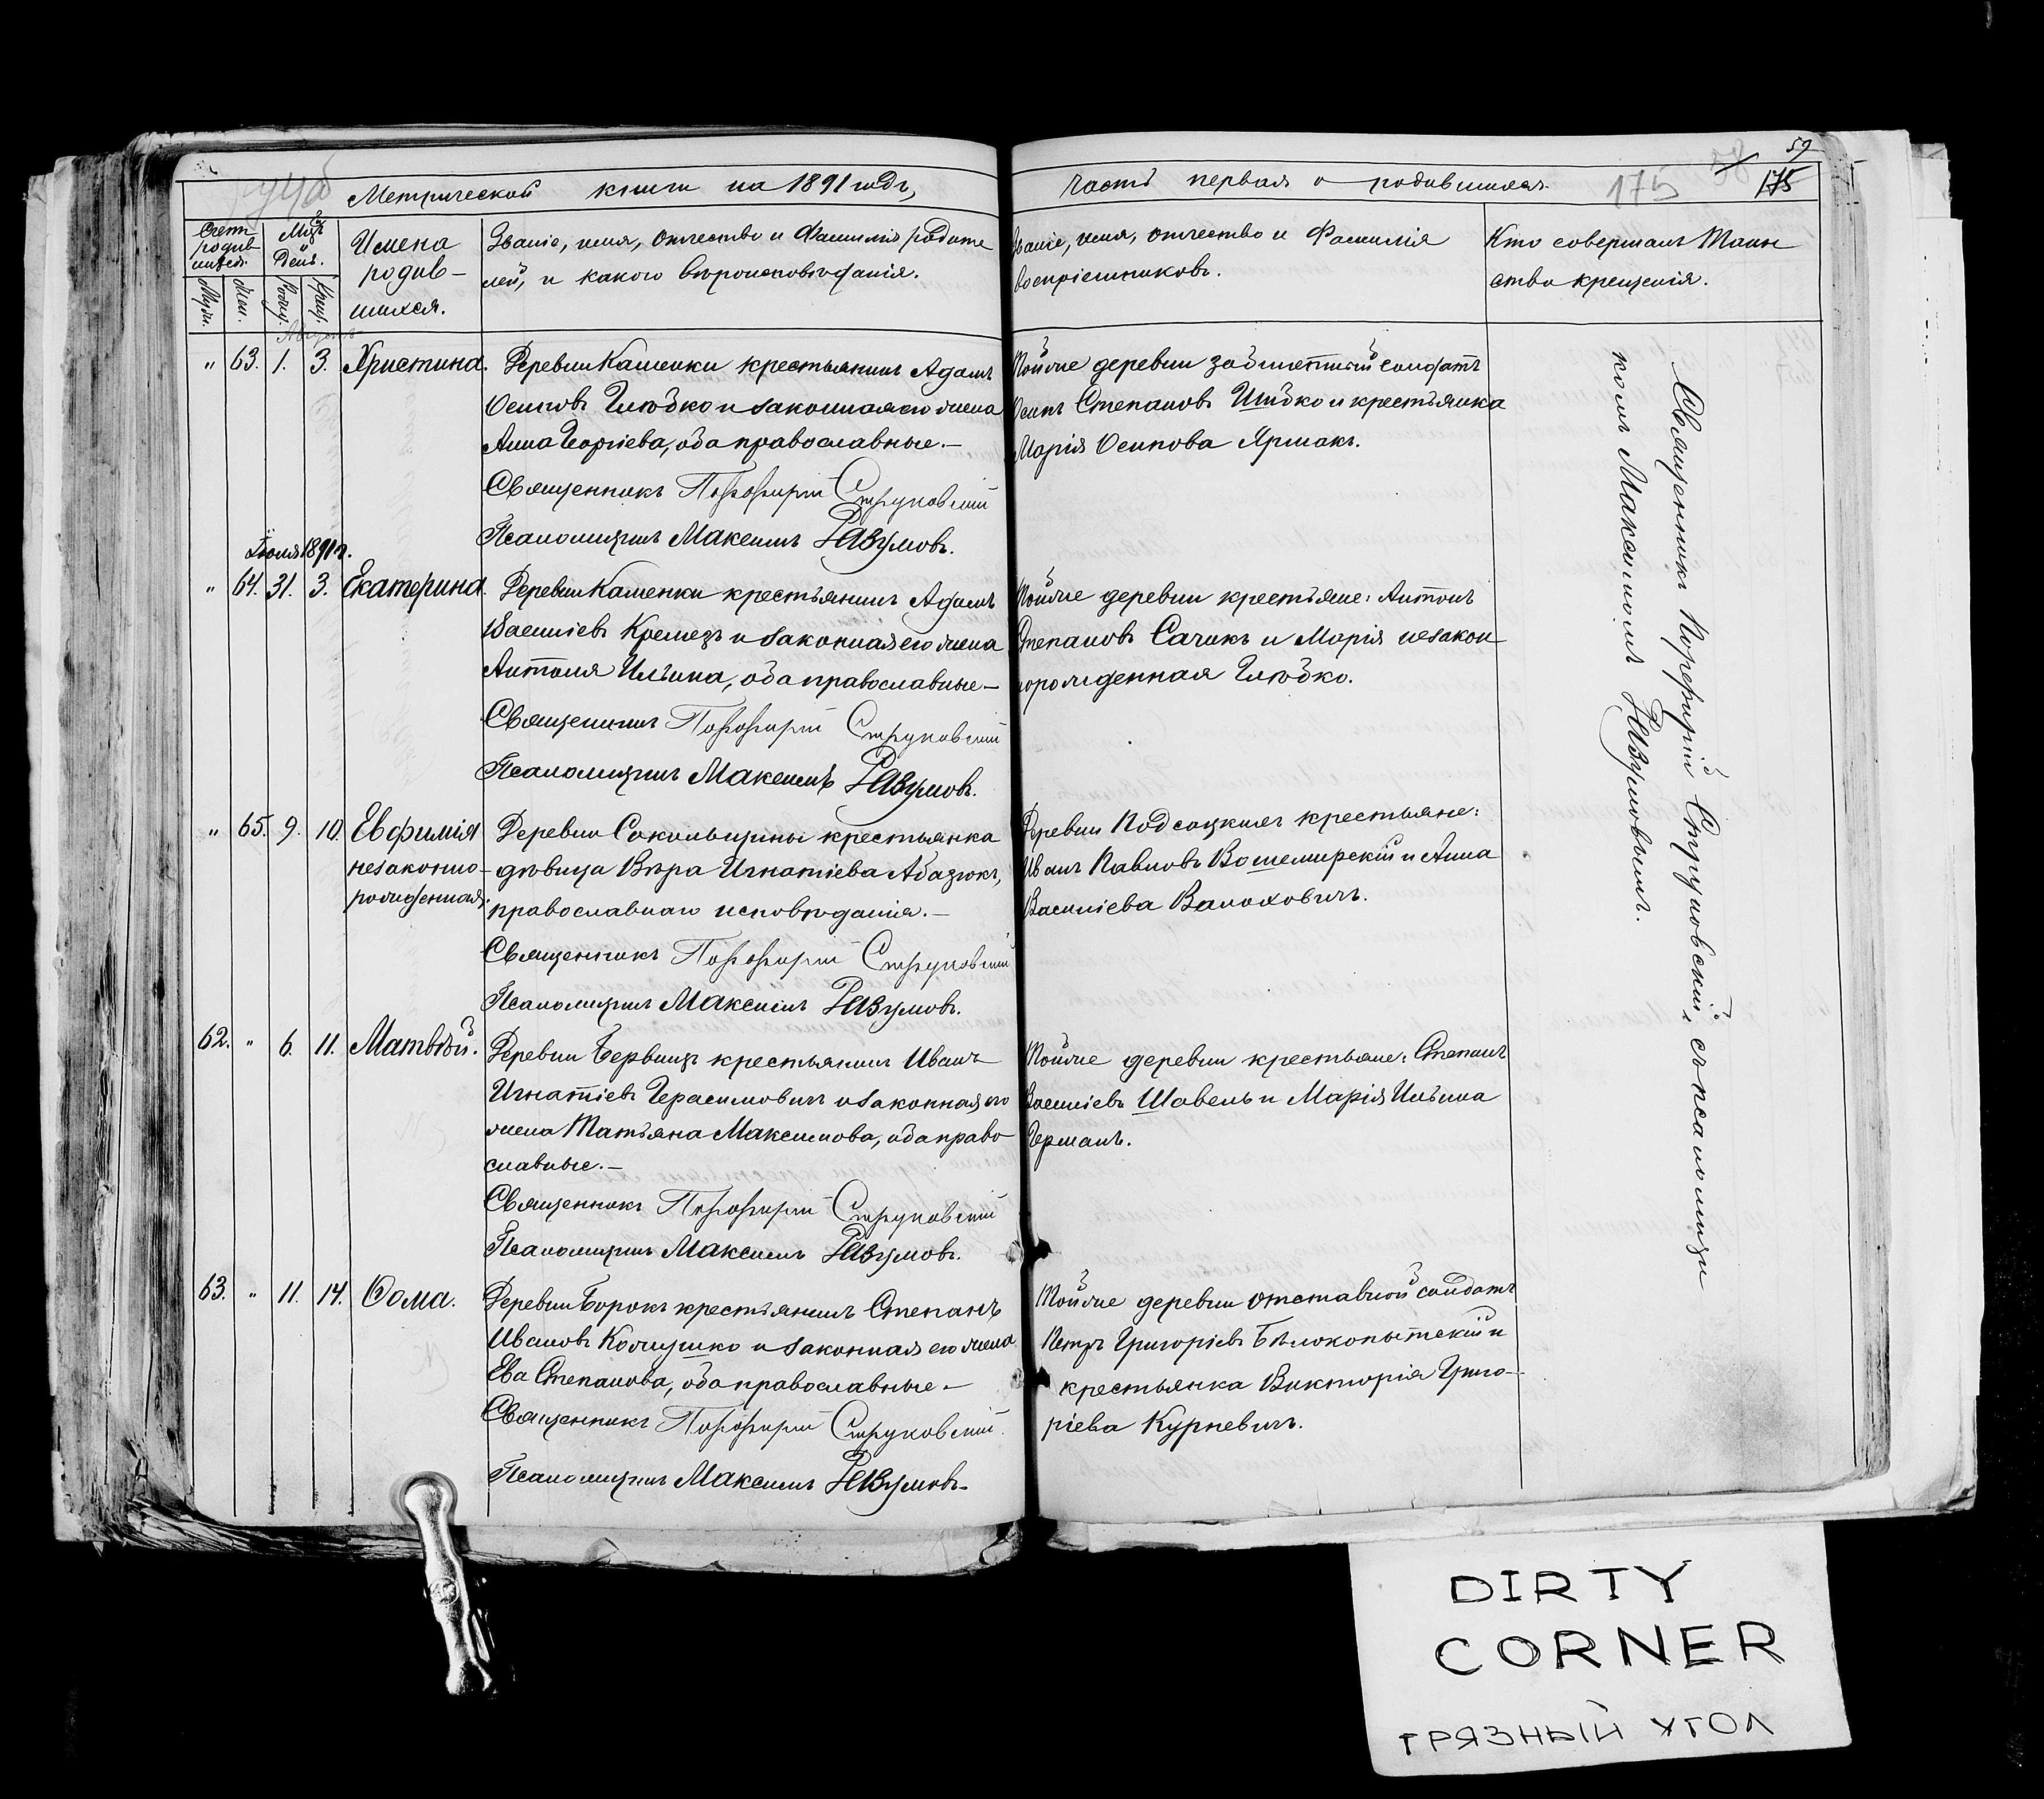 Метрической книги на 1891 годъ,
Часть первая о родившихся.
175
58
59
175
Счетъ родив-шихся.
Мѣс. и День.
Имена родив-шихся.
Званіе, имя, отчество и Фамилія родите
лей, и какого вѣроисповѣданія.
Званіе, имя, отчество и Фамилія
воспріемниковъ.
Кто совершалъ Таин
ство крещенія.
Муж.
Жен.
Рожд.
Крещ.
Августъ
„ 63. 1. 3. Христина.
Деревни Каменки крестьянинъ Адамъ
Осиповъ Глѣбко и законная его жена
Анна Георгіева, оба православные.—
Священникъ Порфирій Струковскій
Псаломщикъ Максимъ Разумовъ.
Тойже деревни солдатъ
Осипъ Степановъ и крестьянка
Марія Осипова Ярмакъ.
Іюля 1891 г.
„ 64. 31. 3. Екатерина.
Деревни Каменки крестьянинъ Адамъ
Василіевъ Кремезъ и законная его жена
Антоля Ильина, оба православные—
Священникъ Порфирій Струковскій
Псаломщикъ Максимъ Разумовъ.
Тойже деревни крестьяне: Антонъ
Степановъ Сачокъ и Марія незакон
норожденная Глѣбко.
„ 65. 9. 10. Евфимія
незаконно-
рожденная.
Деревни Сокольщины крестьянка
дѣвица Вѣра Игнатіева Абазюкъ,
православнаго исповѣданія.—
Священникъ Порфирій Струковскій
Псаломщикъ Максимъ Разумовъ.
Деревни Подсоцкихъ крестьяне:
Иванъ Павловъ Вошемирскій и Анна
Василіева Валоховичъ.
62. „ 6. 11. Матвѣй.
Деревни Бервищъ крестьянинъ Иванъ
Игнатіевъ Герасимовичъ и законная его
жена Татьяна Максимова, оба право
славные.—
Священникъ Порфирій Струковскій
Псаломщикъ Максимъ Разумовъ.
Тойже деревни крестьяне: Степанъ
Василіевъ Шавель и Марія Ильина
Германъ.
63. „ 11. 14. Ѳома.
Деревни Борокъ крестьянинъ Степанъ
Ивановъ Кожушко и законная его жена
Ева Степанова, оба православные—
Священникъ Порфирій Струковскій.
Псаломщикъ Максимъ Разумовъ.
Тойже деревни отставной солдатъ
Петръ Григоріевъ Бѣлокопытскій и
крестьянка Викторія Григо-
ріева Курневичъ.
Священникъ Порфирій Струковскій, съ псаломщи
комъ Максимомъ Разумовымъ.
DIRTY
CORNER
ГРЯЗНЫЙ УГОЛ